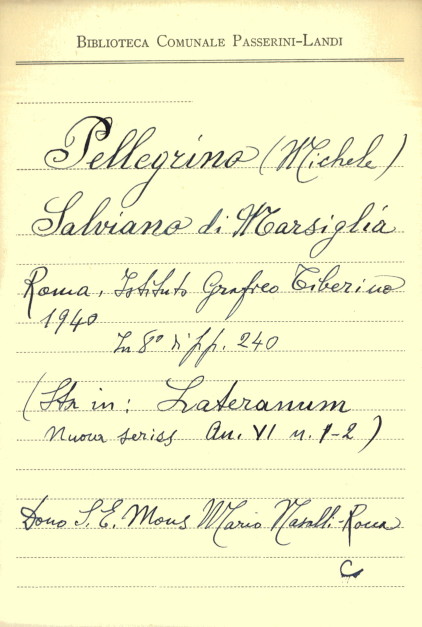 BIBLIOTECA COMUNALE PASSERINI-LANDI
Pellegrino (Michele)
Salviano di Marsiglia
Roma, Istituto Grafico Tiberino
1940
In 8° di pp. 240
(Str in: Lateranum
Nuova seriess An. VI n. 1-2)
Dono S. E. Mons Mario Nasalli-Rocca